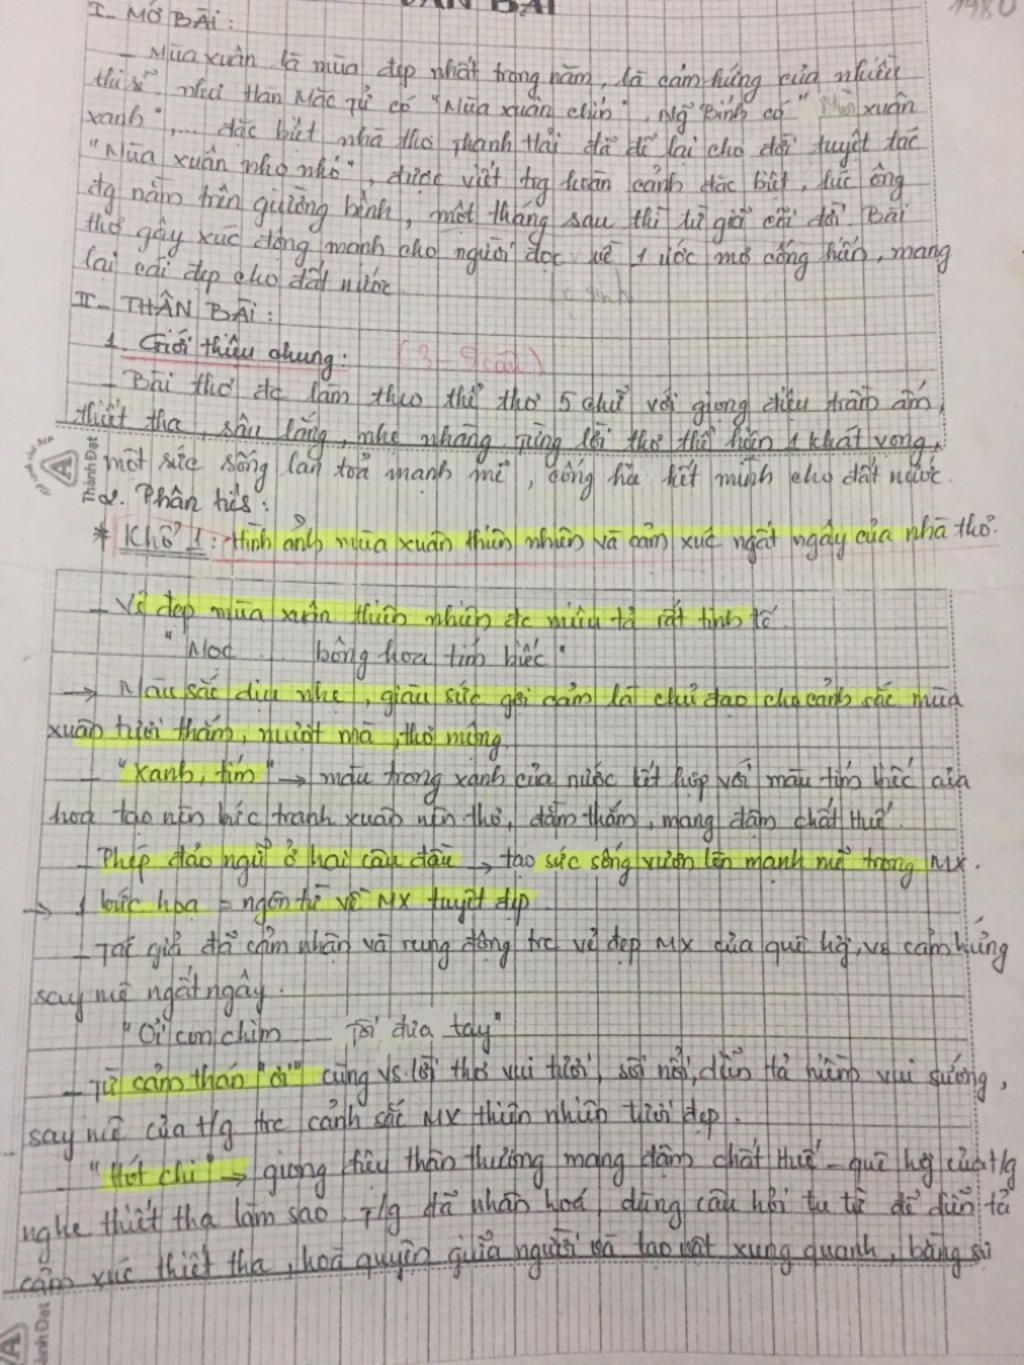 VĂN BÀI
1980
I- MỞ BÀI:
- Mùa xuân là mùa đẹp nhất trong năm, là cảm hứng của nhiều
thi sĩ, như Hàn Mặc Tử có "Mùa xuân chín", Ng Bính có "Mùa xuân
xanh",... đặc biệt nhà thơ Thanh Hải đã để lại cho đời tuyệt tác
"Mùa xuân nho nhỏ", được viết trg hoàn cảnh đặc biệt, lúc ông
đg nằm trên giường bệnh, một tháng sau thì từ giã cõi đời. Bài
thơ gây xúc động mạnh cho người đọc về 1 ước mơ cống hiến, mang
lại cái đẹp cho đất nước
II- THÂN BÀI:
1. Giới thiệu chung: (3-9 câu)
- Bài thơ đc làm theo thể thơ 5 chữ với giọng điệu trầm ấm,
thiết tha, sâu lắng, nhẹ nhàng, từng lời thơ thể hiện 1 khát vọng,
một sức sống lan toả mạnh mẽ, cống hiến hết mình cho đất nước.
Thành Đạt
2. Phân tích:
* Khổ 1: Hình ảnh mùa xuân thiên nhiên và cảm xúc ngất ngây của nhà thơ.
- Vẻ đẹp mùa xuân thiên nhiên đc miêu tả rất tinh tế.
"Mọc ... bông hoa tím biếc"
→ Màu sắc dịu nhẹ, giàu sức gợi cảm là chủ đạo cho cảnh sắc mùa
xuân tươi thắm, mượt mà, thơ mộng.
- "Xanh, tím" → màu trong xanh của nước kết hợp với màu tím biếc của
hoa tạo nên bức tranh xuân nên thơ, đằm thắm, mang đậm chất Huế.
- Phép đảo ngữ ở hai câu đầu → tạo sức sống vươn lên mạnh mẽ trong MX.
→ 1 bức hoạ = ngôn từ về MX tuyệt đẹp
- Tác giả đã cảm nhận và rung động trc vẻ đẹp MX của quê hg, vs cảm hứng
say mê ngất ngây.
"Ơi con chim ... Tôi đưa tay"
- Từ cảm thán "ơi" cùng vs lời thơ vui tươi, sôi nổi, diễn tả niềm vui sướng,
say mê của t/g trc cảnh sắc MX thiên nhiên tươi đẹp.
"Hót chi" → giọng điệu thân thương mang đậm chất Huế - quê hg của t/g
nghe thiết tha làm sao. T/g đã nhân hoá, dùng câu hỏi tu từ để diễn tả
cảm xúc thiết tha, hoà quyện giữa người và tạo vật xung quanh, bằng sự